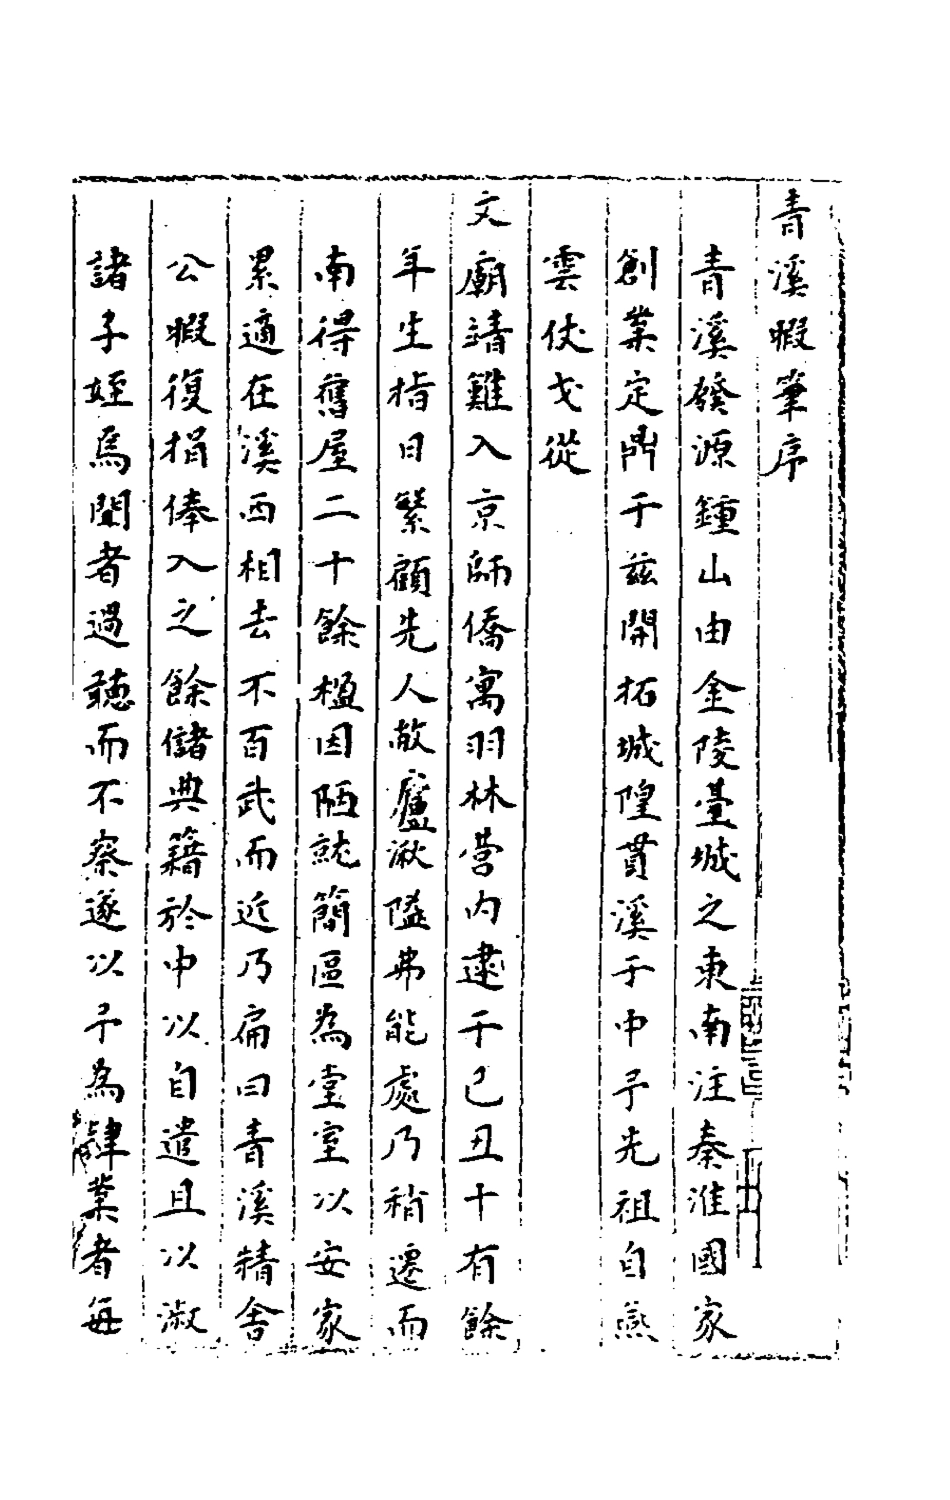 青溪暇筆序
青溪發源鍾山由金陵臺城之東南注秦淮國家
創業定鼎于兹開拓城隍貫溪于中予先祖自燕
雲仗戈從
文廟靖難入京師僑寓羽林營内逮于己丑十有餘
年生指日繁顧先人敝廬湫隘弗能處乃稍遷而
南得舊屋二十餘楹因陋就簡區為堂室以安家
累適在溪西相去不百武而近乃扁曰青溪精舍
公暇復捐俸入之餘儲典籍於中以自遣且以淑
諸子姪焉聞者過聽而不察遂以予為肄業者每